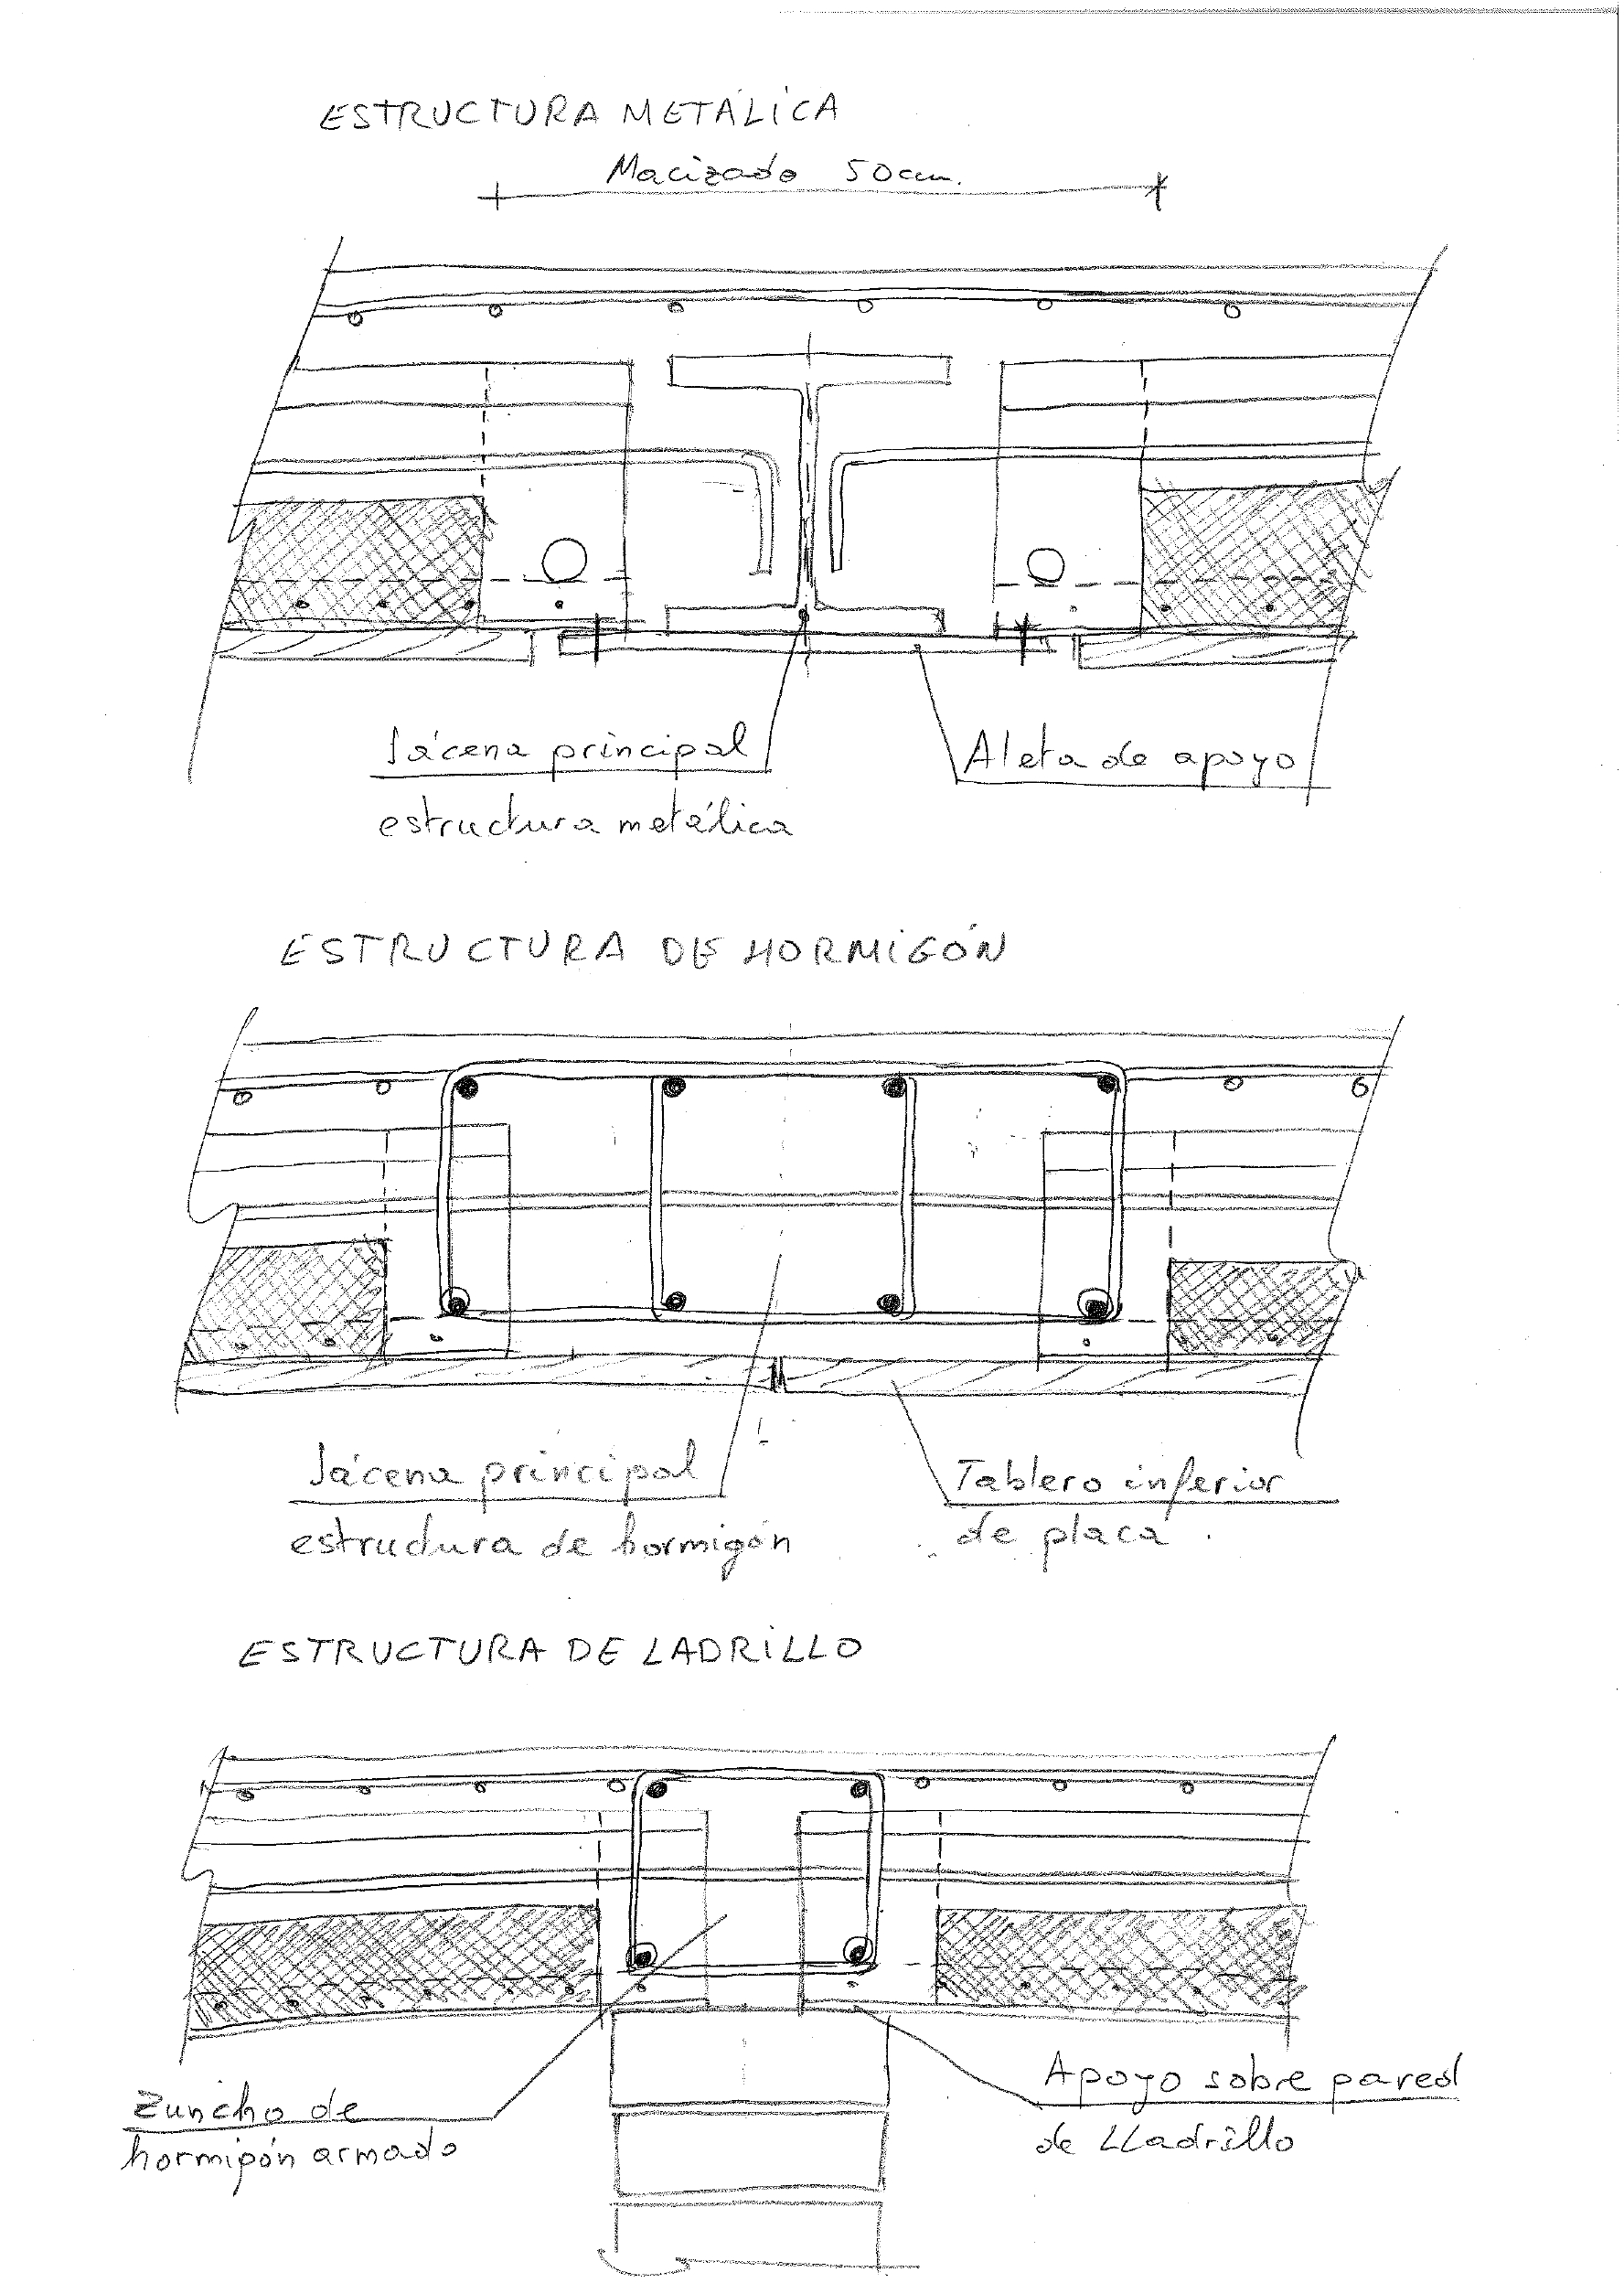 ESTRUCTURA METÁLICA
Macizado 50cm.
Jácena principal
estructura metálica
Aleta de apoyo
ESTRUCTURA DE HORMIGÓN
Jácena principal
estructura de hormigón
Tablero inferior
de placa
ESTRUCTURA DE LADRILLO
Zuncho de
hormigón armado
Apoyo sobre pared
de LLadrillo